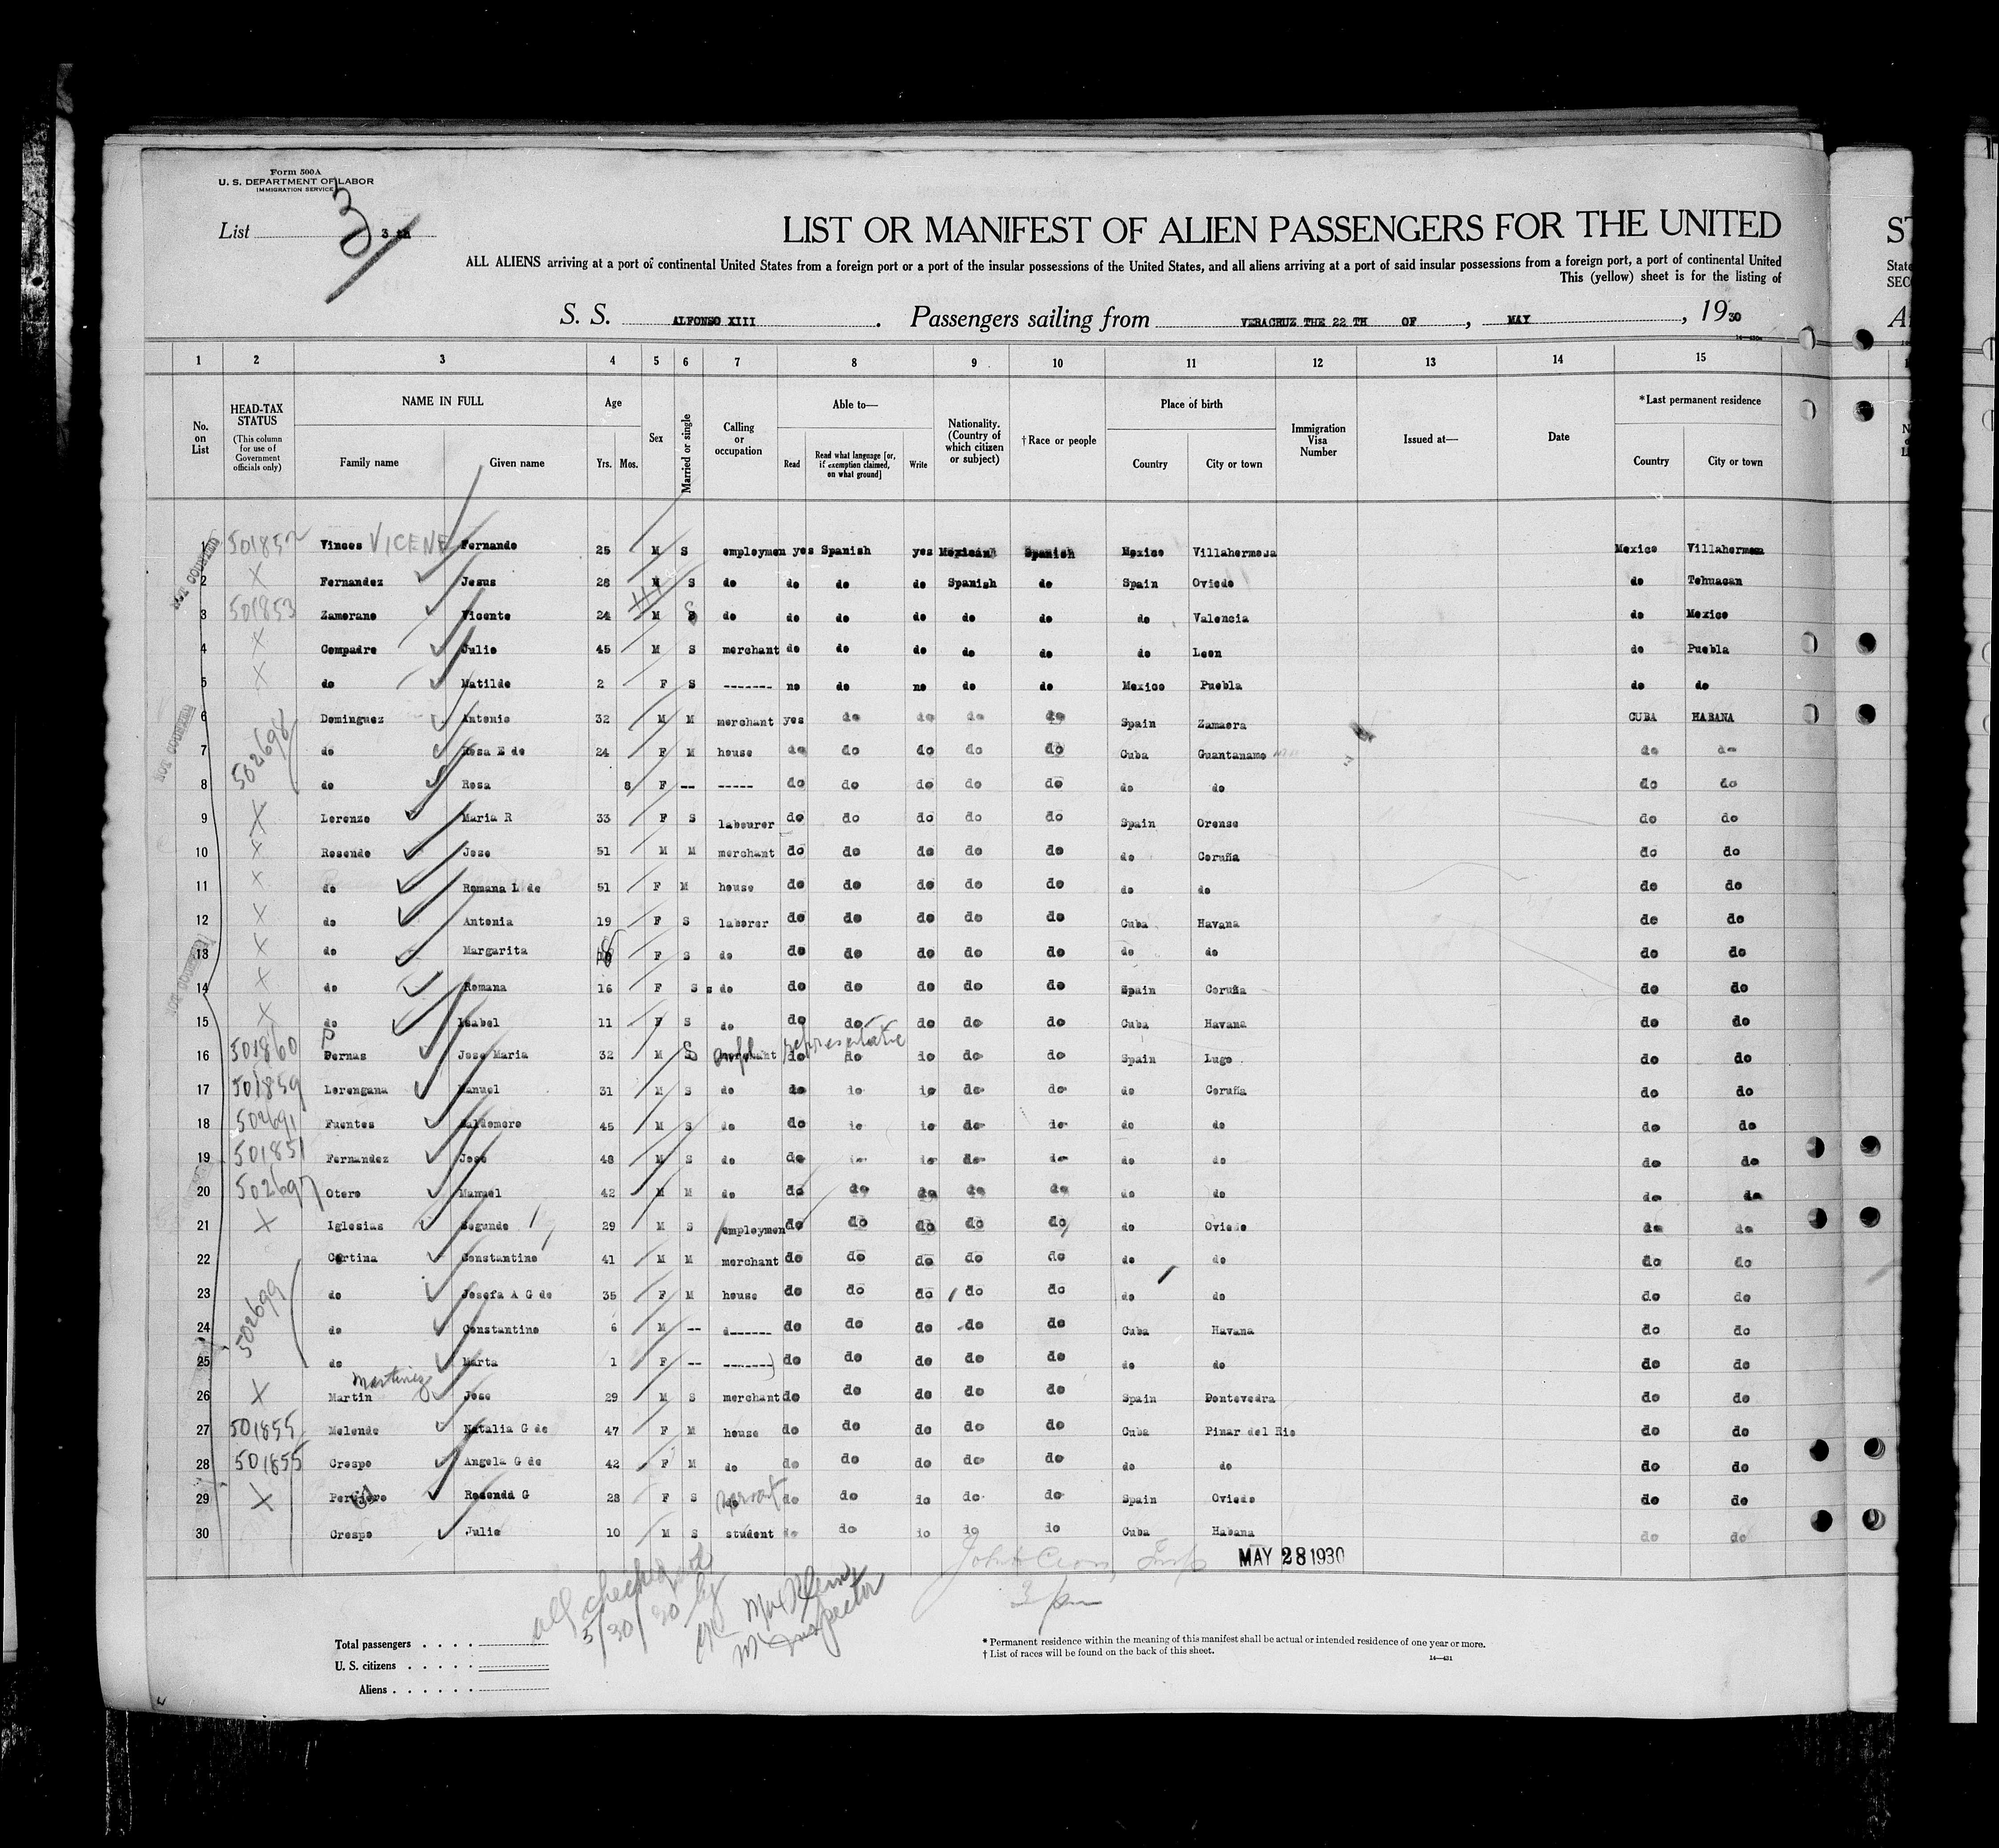 Form 500A
U. S. DEPARTMENT OF LABOR
IMMIGRATION SERVICE
List 3 3
LIST OR MANIFEST OF ALIEN PASSENGERS FOR THE UNITED
ALL ALIENS arriving at a port of continental United States from a foreign port or a port of the insular possessions of the United States, and all aliens arriving at a port of said insular possessions from a foreign port, a port of continental United
This (yellow) sheet is for the listing of
S. S. ALFONSO XIII . Passengers sailing from VERACRUZ THE 22 TH OF , MAY , 1930
1 2 3 4 5 6 7 8 9 10 11 12 13 14 15
No. on List
HEAD-TAX STATUS (This column for use of Government officials only)
NAME IN FULL Family name Given name
Age Yrs. Mos.
Sex
Married or single
Calling or occupation
Able to— Read Read what language [or, if exemption claimed, on what ground] Write
Nationality. (Country of which citizen or subject)
†Race or people
Place of birth Country City or town
Immigration Visa Number
Issued at—
Date
*Last permanent residence Country City or town
1 501852 Vinces VICENE Fernando 25 M S employmen yes Spanish yes Mexican Spanish Mexico Villahermosa Mexico Villahermosa
2 X Fernandez Jesus 28 M S do do do do Spanish do Spain Oviedo do Tehuacan
3 501853 Zamorano Vicente 24 M S do do do do do do do Valencia do Mexico
4 X Compadre Julio 45 M S merchant do do do do do do Leon do Puebla
5 X do Matilde 2 F S ------- no do no do do Mexico Puebla do do
6 Dominguez Antonio 32 M M merchant yes do do do do Spain Zamaora CUBA HABANA
7 502698 do Rosa E de 24 F M house do do do do do Cuba Guantanamo do do
8 do Rosa 8 F -- ----- do do do do do do do do do
9 X Lorenzo Maria R 33 F S labourer do do do do do Spain Orense do do
10 X Rosende Jose 51 M M merchant do do do do do do Coruña do do
11 X do Romana L de 51 F M house do do do do do do do do do
12 X do Antonia 19 F S laborer do do do do do Cuba Havana do do
13 X do Margarita 18 F S do do do do do do do do do do
14 X do Romana 16 F S s do do do do do do Spain Coruña do do
15 X do Isabel 11 F S do do do do do do Cuba Havana do do
16 501860 P Pernas Jose Maria 32 M S merchant representative do do do do do Spain Lugo do do
17 501859 Lorengana Manuel 31 M S do do do do do do do Coruña do do
18 502691 Fuentes Baldomero 45 M S do do do do do do do do do do
19 501851 Fernandez Jose 48 M S do do do do do do do do do do
20 502697 Otero Manuel 42 M M do do do do do do do do do do
21 X Iglesias Segundo 29 M S employmen do do do do do do Oviedo do do
22 Cortina Constantino 41 M M merchant do do do do do do do do do
23 502699 do Josefa A G de 35 F M house do do do do do do do do do
24 do Constantino 6 M -- d------ do do do do do Cuba Havana do do
25 do Marta 1 F -- ------- do do do do do do do do do
26 X Martin Martinez Jose 29 M S merchant do do do do do Spain Pontevedra do do
27 501855 Melende Natalia G de 47 F M house do do do do do Cuba Pinar del Rio do do
28 501855 Crespo Angela G de 42 F M do do do do do do do do do do
29 X Rosenda G 28 F S servant do do do do do Spain Oviedo do do
30 Crespo Julio 10 M S student do do do do do Cuba Habana do do
MAY 28 1930
3 pm
all checked out
5/30/30 by
Inspector
Total passengers . . . .
U. S. citizens . . . . .
Aliens . . . . . .
* Permanent residence within the meaning of this manifest shall be actual or intended residence of one year or more.
† List of races will be found on the back of this sheet.
14—431